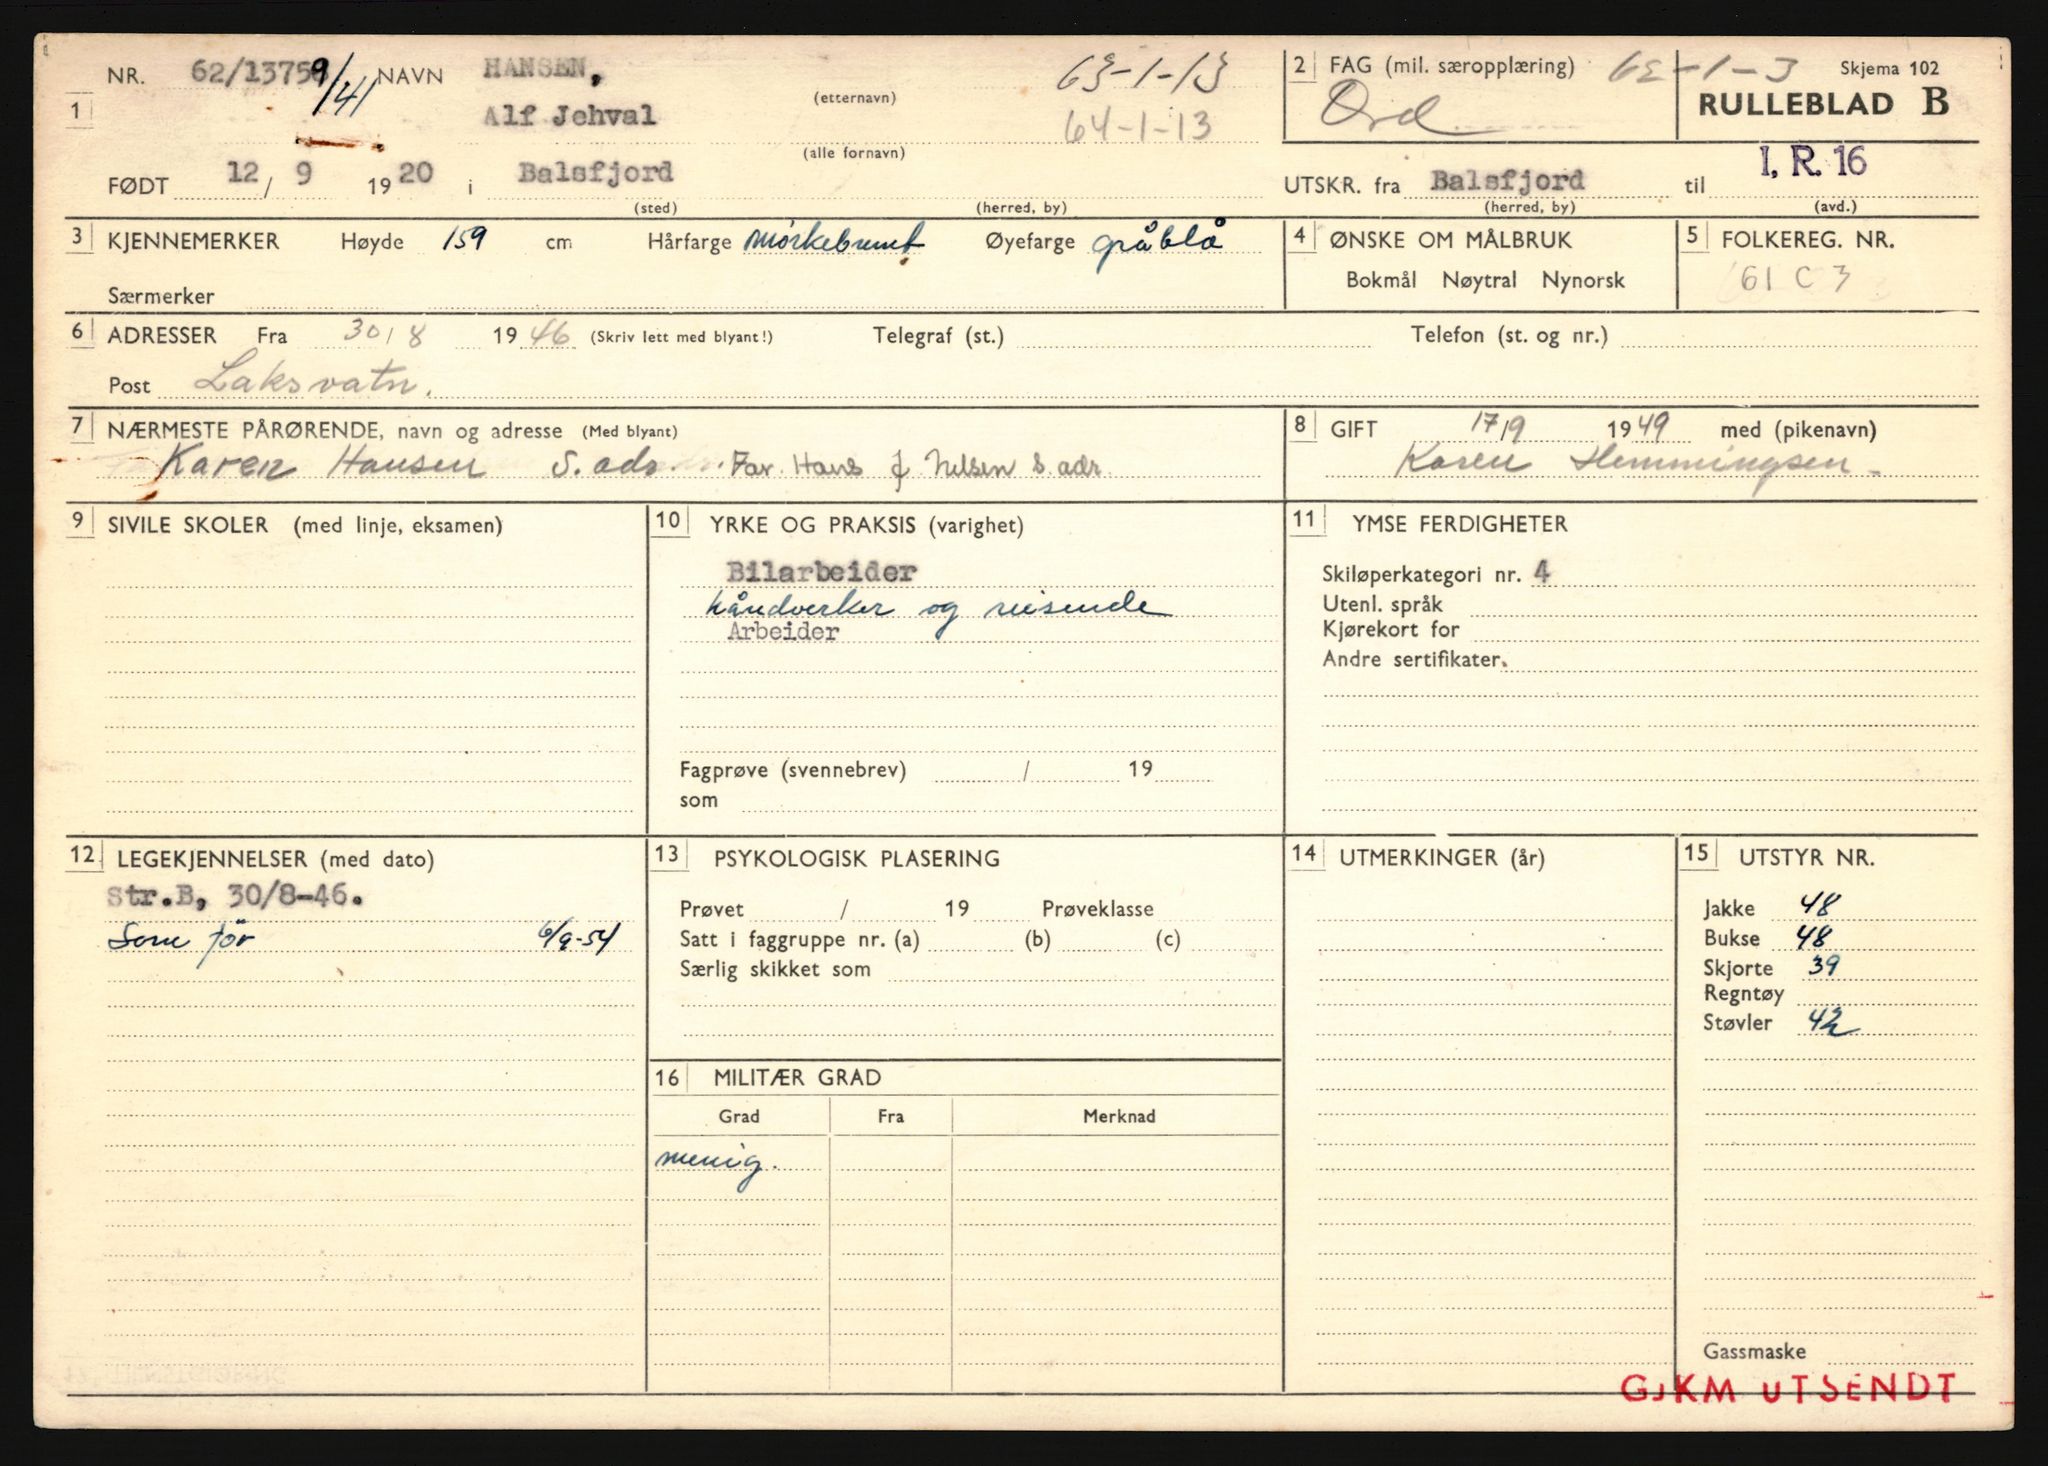 NR. 62/13759/41 NAVN HANSEN, (etternavn) 63-1-13
1 Alf Jehval (alle fornavn) 64-1-13
2 FAG (mil. særopplæring) Ord 62-1-3 Skjema 102
RULLEBLAD B
FØDT 12/9 1920 i Balsfjord (sted) (herred, by)
UTSKR. fra Balsfjord (herred, by) til I.R.16 (avd.)
3 KJENNEMERKER Høyde 159 cm Hårfarge mörkebrunt Øyefarge gråblå
Særmerker
4 ØNSKE OM MÅLBRUK
Bokmål Nøytral Nynorsk
5 FOLKEREG. NR.
61 C 3
6 ADRESSER Fra 30/8 1946 (Skriv lett med blyant!) Telegraf (st.) Telefon (st. og nr.)
Post Laksvatn.
7 NÆRMESTE PÅRØRENDE, navn og adresse (Med blyant)
Karen Hansen S. adr. Far. Hans J Nilsen S. adr.
8 GIFT 17/9 1949 med (pikenavn)
Karen Hemmingsen
9 SIVILE SKOLER (med linje, eksamen)
10 YRKE OG PRAKSIS (varighet)
Bilarbeider
håndverker og reisende
Arbeider
Fagprøve (svennebrev) / 19
som
11 YMSE FERDIGHETER
Skiløperkategori nr. 4
Utenl. språk
Kjørekort for
Andre sertifikater.
12 LEGEKJENNELSER (med dato)
Str.B, 30/8-46.
Som för 6/9-54
13 PSYKOLOGISK PLASERING
Prøvet / 19 Prøveklasse
Satt i faggruppe nr. (a) (b) (c)
Særlig skikket som
14 UTMERKINGER (år)
15 UTSTYR NR.
Jakke 48
Bukse 48
Skjorte 39
Regntøy
Støvler 42
Gassmaske
16 MILITÆR GRAD
Grad Fra Merknad
menig.
GJKM UTSENDT